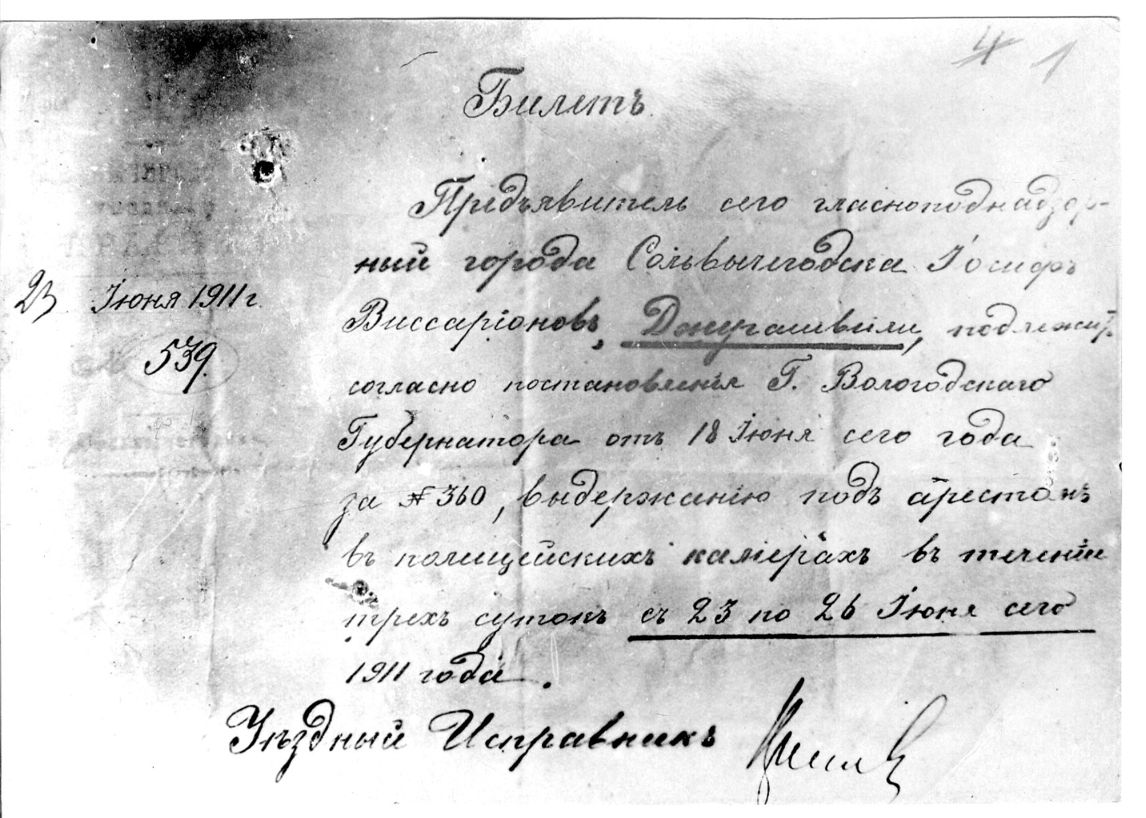 4 1
Билетъ
Предъявитель сего гласноподнадзор-
ный города Сольвычегодска Іосифъ
Виссаріоновъ, Джугашвили, подлежит
согласно постановленія Г. Вологодскаго
Губернатора отъ 18 Іюня сего года
за № 360, выдержанію подъ арестомъ
въ полицейскихъ камерахъ въ теченіи
трехъ сутокъ съ 23 по 26 Іюня сего
1911 года.
Уѣздный Исправникъ
23 Іюня 1911 г.
№ 539.